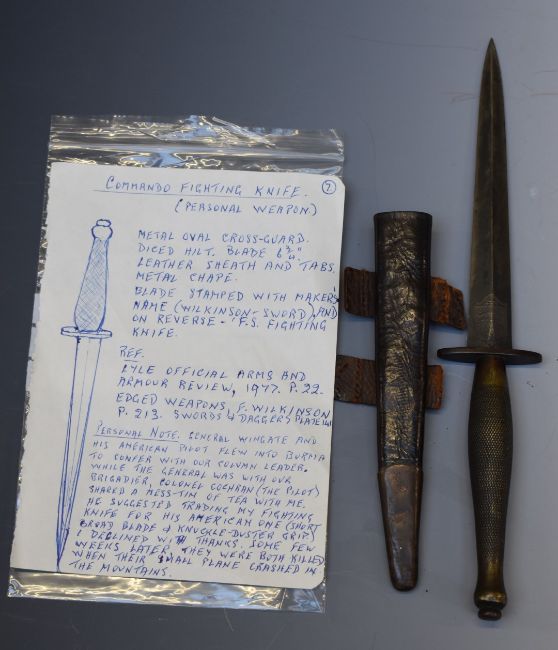 2
COMMANDO FIGHTING KNIFE.
(PERSONAL WEAPON.)
METAL OVAL CROSS-GUARD.
DICED HILT. BLADE 6 3/4".
LEATHER SHEATH AND TABS.
METAL CHAPE.
BLADE STAMPED WITH MAKER'S
NAME (WILKINSON-SWORD), AND
ON REVERSE - "F.S. FIGHTING
KNIFE.
REF.
LYLE OFFICIAL ARMS AND
ARMOUR REVIEW, 1977. P. 22.
EDGED WEAPONS, F. WILKINSON
P. 213. SWORDS & DAGGERS PLATE
PERSONAL NOTE. GENERAL WINGATE AND
HIS AMERICAN PILOT FLEW INTO BURMA
TO CONFER WITH OUR COLUMN LEADER.
WHILE THE GENERAL WAS WITH OUR
BRIGADIER, COLONEL COCHRAN (THE PILOT)
SHARED A MESS-TIN OF TEA WITH ME.
HE SUGGESTED TRADING MY FIGHTING
KNIFE FOR HIS AMERICAN ONE (SHORT
BROAD BLADE & KNUCKLE-DUSTER GRIP)
I DECLINED WITH THANKS. SOME FEW
WEEKS LATER, THEY WERE BOTH KILLED
WHEN THEIR SMALL PLANE CRASHED IN
THE MOUNTAINS.